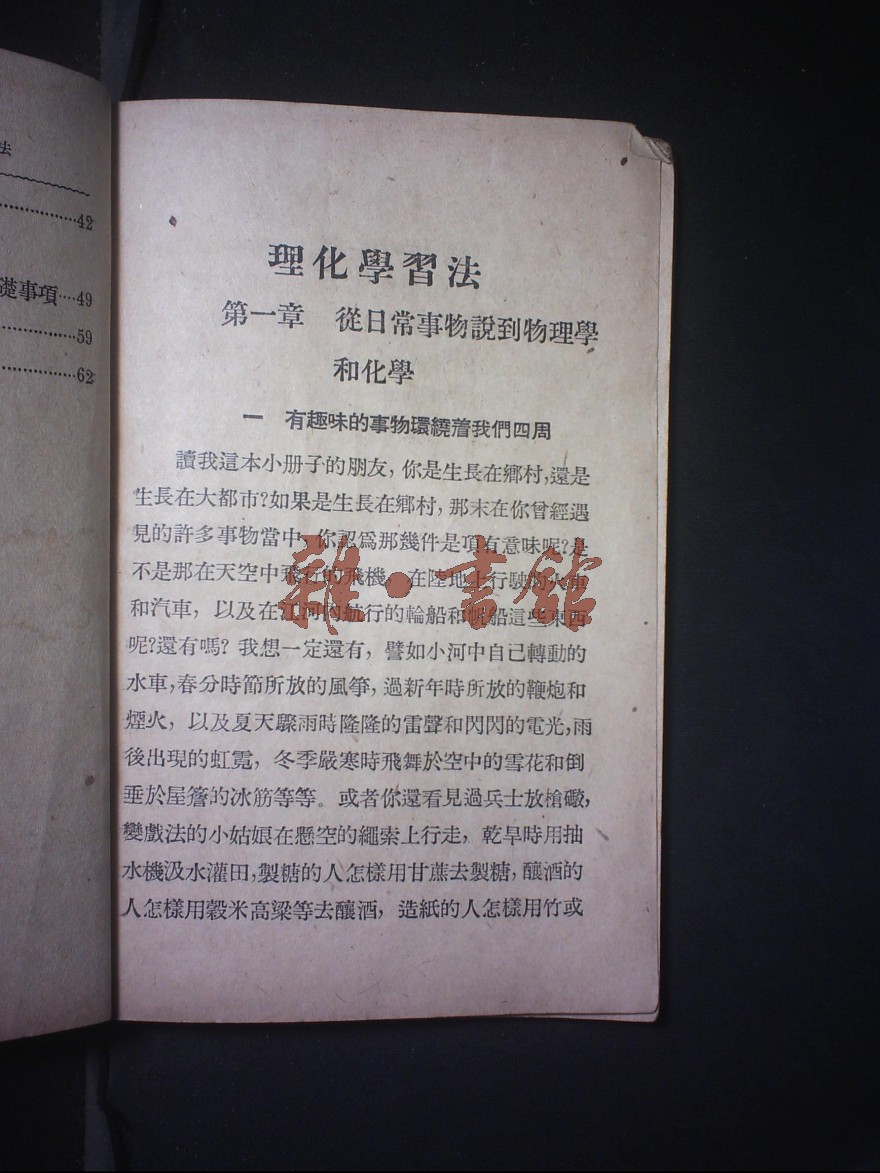 法
42
礎事項 49
59
62
理化學習法
第一章　從日常事物說到物理學
和化學
一　有趣味的事物環繞着我們四周
讀我這本小册子的朋友，你是生長在鄉村，還是
生長在大都市？如果是生長在鄉村，那末在你曾經遇
見的許多事物當中，你認爲那幾件是項有意味呢？是
不是那在天空中飛行的飛機，在陸地上行駛的火車
和汽車，以及在江河內航行的輪船和帆船這些東西
呢？還有嗎？我想一定還有，譬如小河中自已轉動的
水車，春分時節所放的風箏，過新年時所放的鞭炮和
煙火，以及夏天驟雨時隆隆的雷聲和閃閃的電光，雨
後出現的虹霓，冬季嚴寒時飛舞於空中的雪花和倒
垂於屋簷的冰筋等等。或者你還看見過兵士放槍礮，
變戲法的小姑娘在懸空的繩索上行走，乾旱時用抽
水機汲水灌田，製糖的人怎樣用甘蔗去製糖，釀酒的
人怎樣用穀米高粱等去釀酒，造紙的人怎樣用竹或
雜·書館